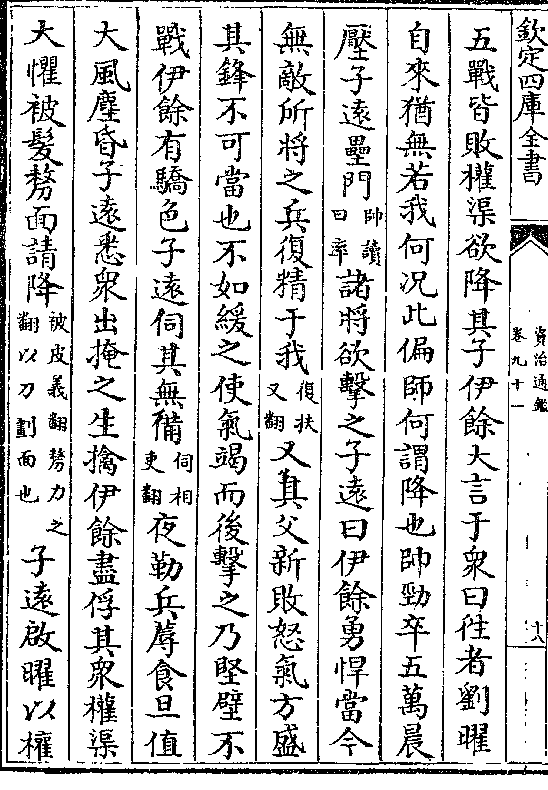 欽定四庫全書
資治通鑑
卷九十一
十八
五戰皆敗權渠欲降其子伊餘大言于衆曰徃者劉曜
自來猶無若我何况此偏師何謂降也帥勁卒五萬晨
壓子遠壘門帥讀曰率諸將欲擊之子遠曰伊餘勇悍當今
無敵所將之兵復精于我復扶又翻又其父新敗怒氣方盛
其鋒不可當也不如緩之使氣竭而後擊之乃堅壁不
戰伊餘有驕色子遠伺其無備伺相吏翻夜勒兵蓐食旦值
大風塵昏子遠悉衆出掩之生擒伊餘盡俘其衆權渠
大懼被髮剺面請降被皮義翻剺力之翻以刀劃面也子遠啟曜以權